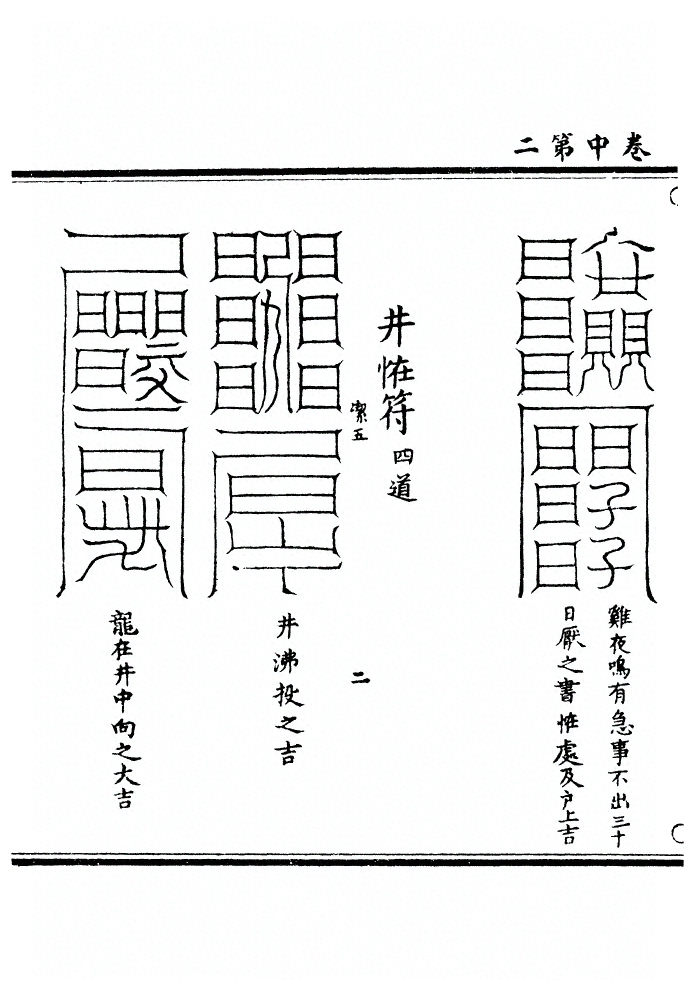 卷中第二
雞夜鳴有急事不出三十
日厭之書恠處及戶上吉
井恠符四道
案五
二
井沸投之吉
龍在井中向之大吉